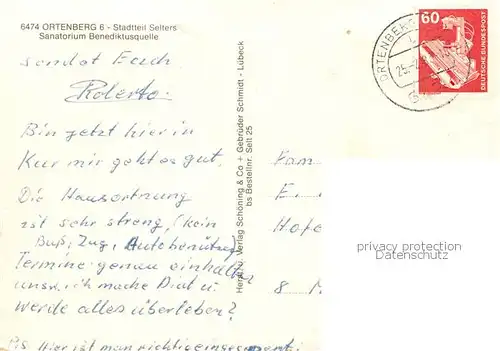 6474 ORTENBERG 6 - Stadtteil Selters
Sanatorium Benediktusquelle
sendet Euch
Roberto.
Bin jetzt hier in
Kur mir geht es gut.
Die Hausortnung
ist sehr streng, (kein
Buß, Zug, Autobenützug
Termine genau einhalten
usw. ich mache Diat u
werde alles überleben?
Ps. Hier ist man richtig eingesperrt
Herst. u. Verlag Schöning & Co + Gebrüder Schmidt - Lübeck
bs Bestellnr. Selt 25
ORTENBERG
60
DEUTSCHE BUNDESPOST
Fam
E.
Hofe
8 M
privacy protection
Datenschutz